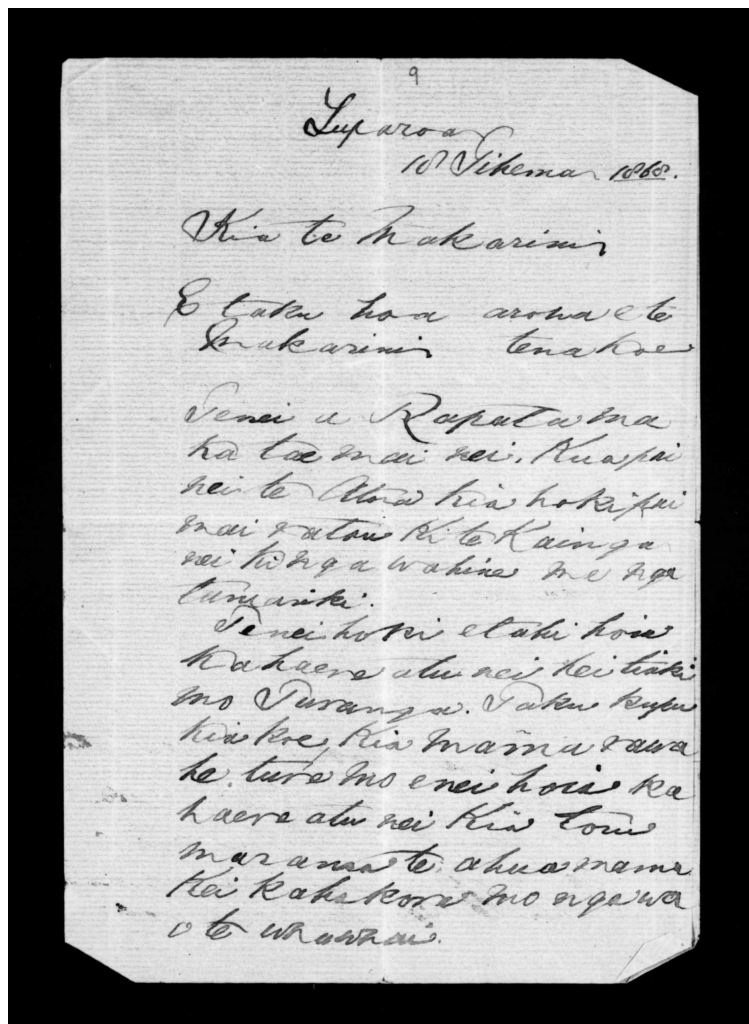 9
Tuparoa
10 Tihema 1868.
Kia te Makarini
E taku hoa aroha e te
Makarini tenakoe
Tenei a Rapata ma
ka tae mai nei. Kua pai
nei te Atua kia hoki pai
mai ratou ki te Kainga
nei ki nga wahine me nga
tamariki.
Tenei hoki etahi hoia
ka haere atu nei hei tiaki
mo Turanga. Taku kupu
kia koe, Kia mama rawa
he ture mo enei hoia ka
haere atu nei Kia tou
maranga te ahua mama
Kei kaha kore mo nga wa
o te whawhai.